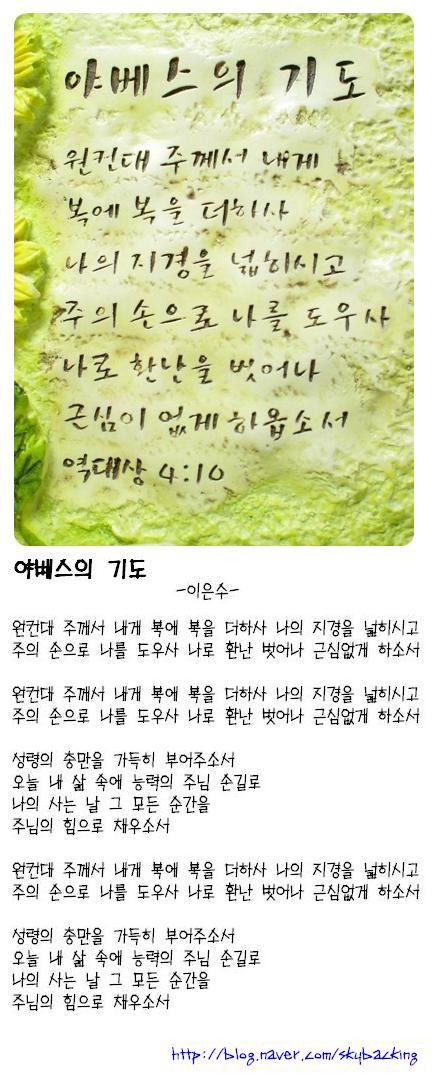 야베스의 기도
원컨대 주께서 내게
복에 복을 더하사
나의 지경을 넓히시고
주의 손으로 나를 도우사
나로 환난을 벗어나
근심이 없게 하옵소서
역대상 4:10
야베스의 기도
-이은수-
원컨대 주께서 내게 복에 복을 더하사 나의 지경을 넓히시고
주의 손으로 나를 도우사 나로 환난 벗어나 근심없게 하소서
원컨대 주께서 내게 복에 복을 더하사 나의 지경을 넓히시고
주의 손으로 나를 도우사 나로 환난 벗어나 근심없게 하소서
성령의 충만을 가득히 부어주소서
오늘 내 삶 속에 능력의 주님 손길로
나의 사는 날 그 모든 순간을
주님의 힘으로 채우소서
원컨대 주께서 내게 복에 복을 더하사 나의 지경을 넓히시고
주의 손으로 나를 도우사 나로 환난 벗어나 근심없게 하소서
성령의 충만을 가득히 부어주소서
오늘 내 삶 속에 능력의 주님 손길로
나의 사는 날 그 모든 순간을
주님의 힘으로 채우소서
http://blog.naver.com/skybacking